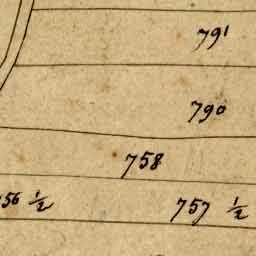 791
790
758
56 ½ 757 ½